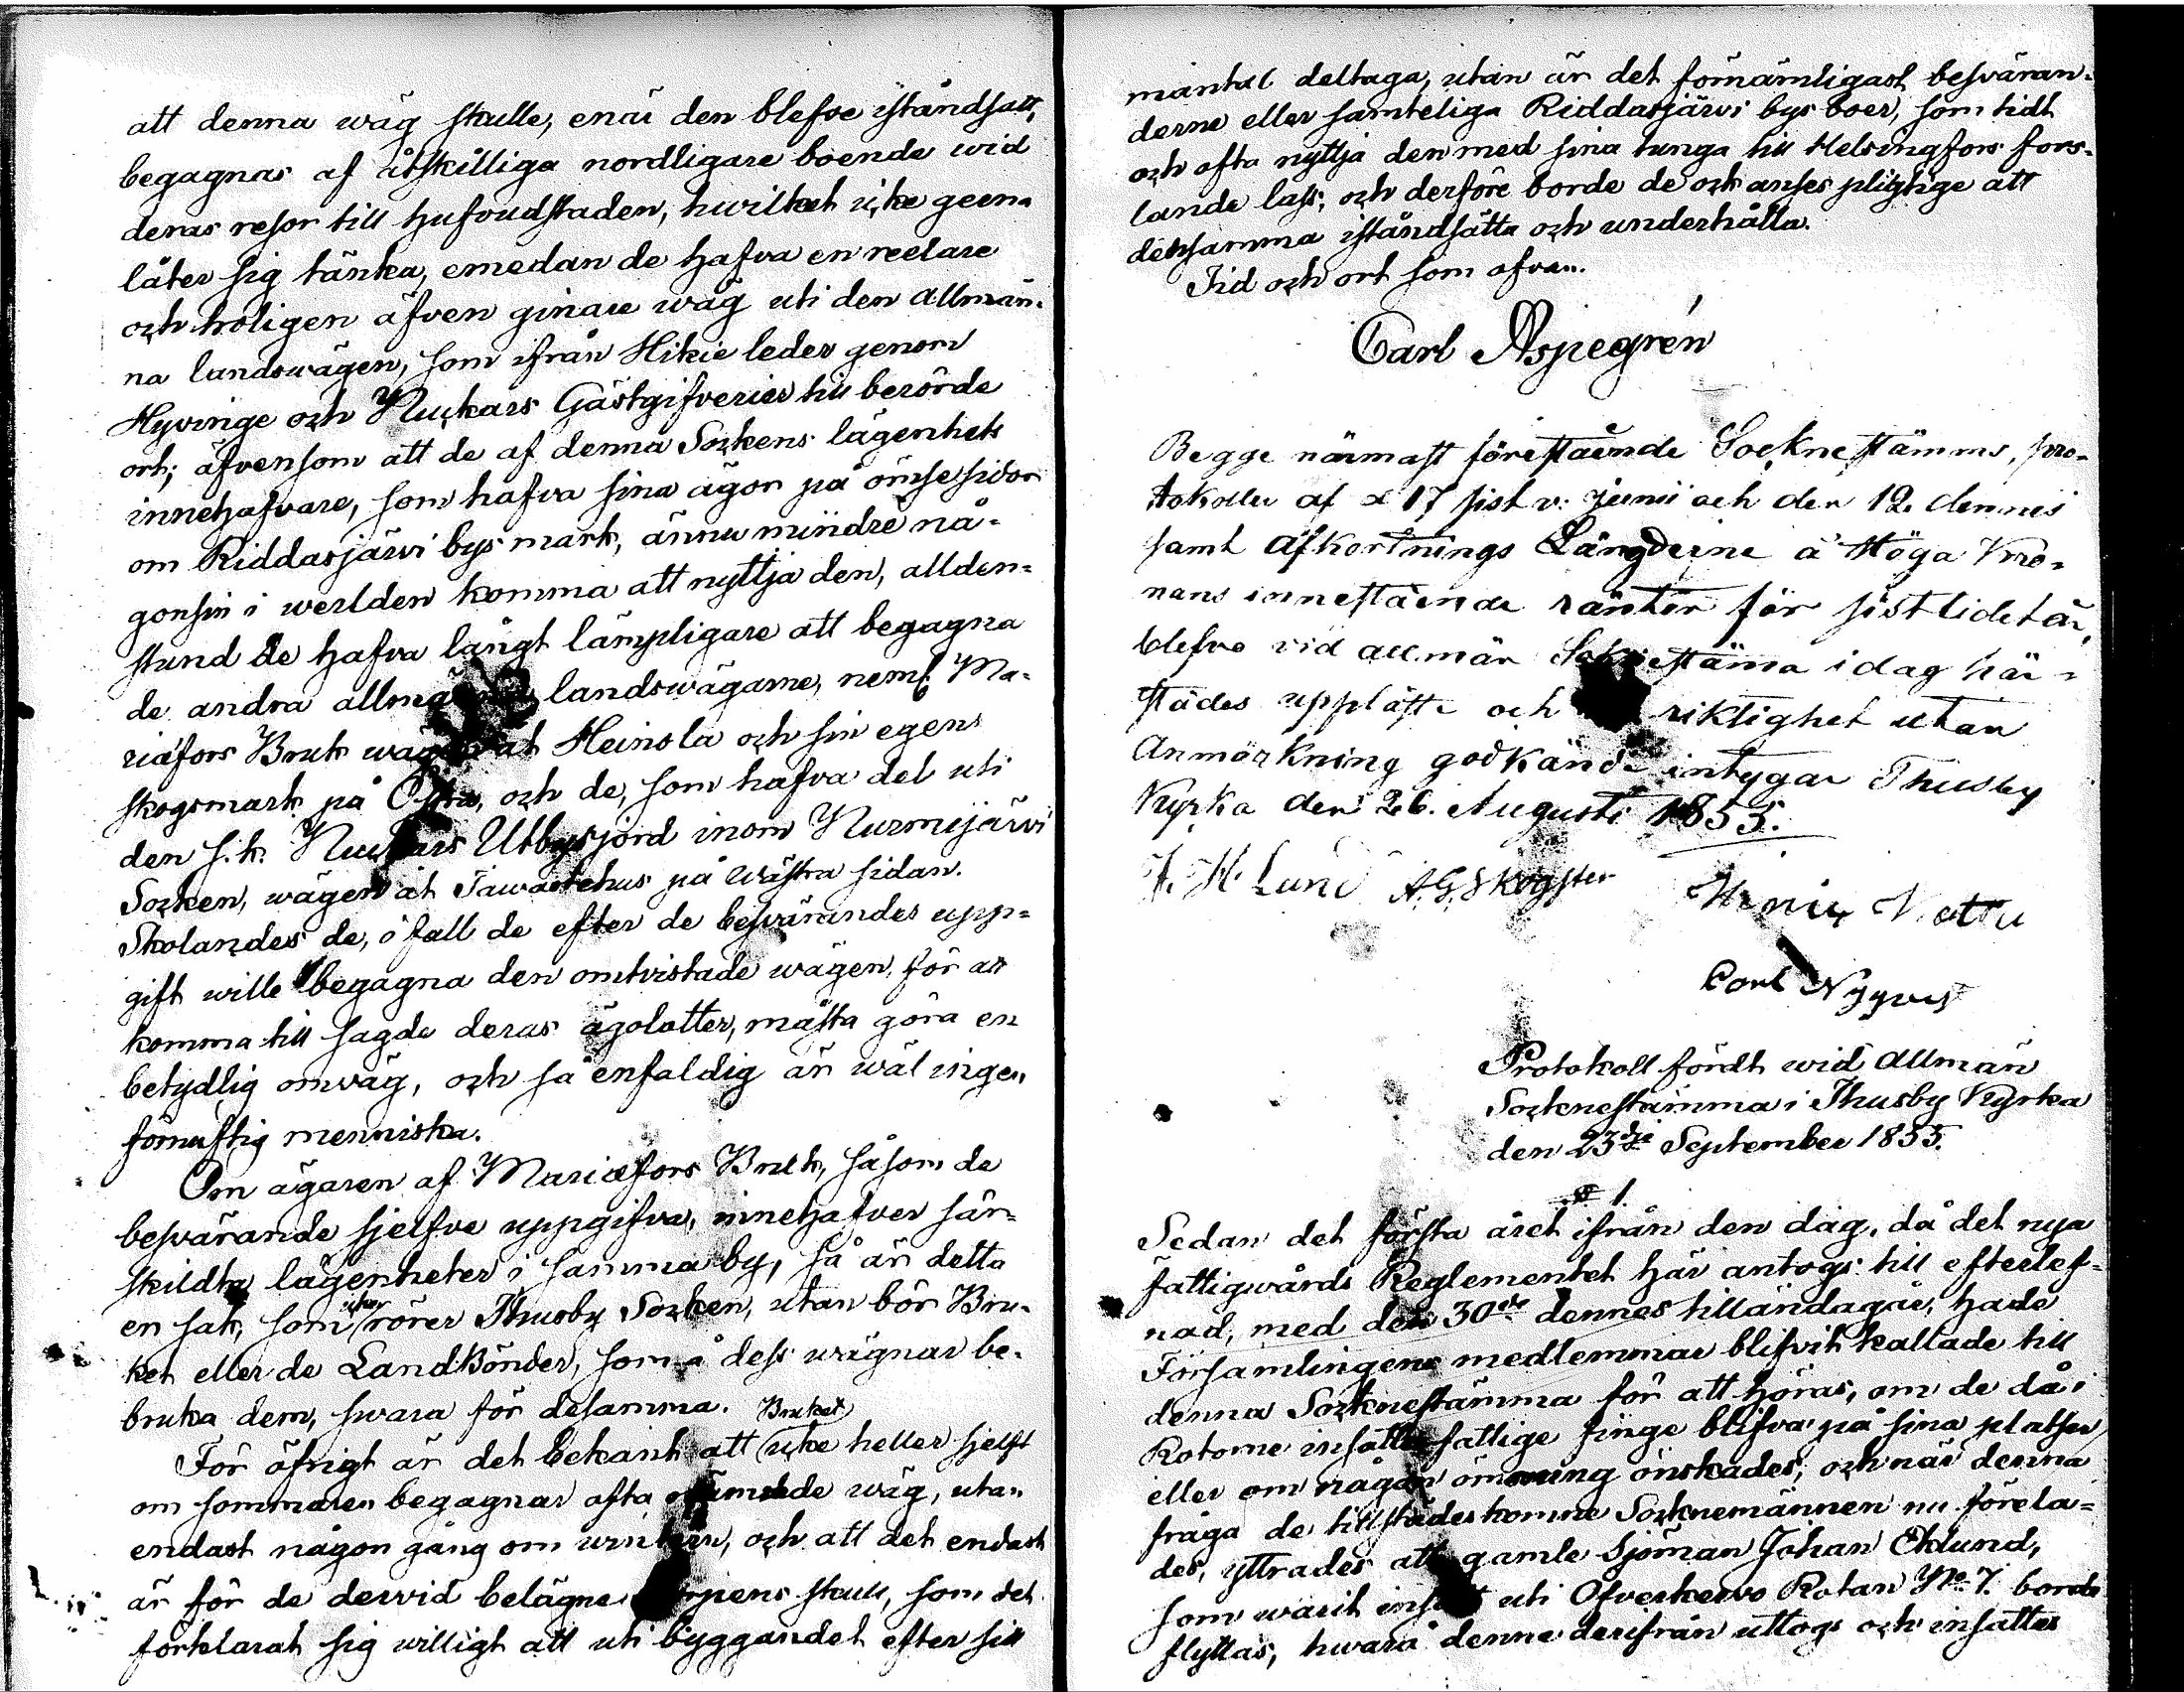 att denna wäg skulle, enär den blefve iståndsatt,
begagnas af åtskilliga nordligare boende wid
deras resor till hufvudstaden, hwilket icke geena
låter sig tänka, emedan de hafva en reelare
och troligen äfven ginare wäg uti den allmän-
na landswägen, som ifrån Hikie leder genom
Hyvinge och Nuckars Gästgifverier till berörde
ort; äfvensom att de af denna Sockens lägenhets
innehafvare, som hafva sina ägor på ömse sidor
om Riddasjärvi bys mark, ännu mindre nå-
gonsin i werlden komma att nyttja den, allden-
stund de hafva långt lämpligare att begagna
de andra allmänna landswägarne, neml. Ma-
riæfors Bruk wägen åt Heinola och sin egens
skogsmark på Östra, och de, som hafva del uti
den s.k. Nuckars Utbysjord inom Nurmijärvi
Socken, wägen åt Tawastehus på Wästra sidan.
Skolandes de, i fall de efter de beswärandes upp-
gift wille begagna den omtvistade wägen, för att
komma till sagde deras ägolotter, måsta göra en
betydlig omväg, och så enfaldig är wäl ingen
förnuftig menniska.
Om ägaren af Mariæfors Bruk, såsom de
beswärande sjelfve uppgifva, innehafver sär-
skildta lägenheter i samma by, så är detta
en sak, som icke rörer Thusby Socken, utan bör Bru-
ket eller de LandBönder, som å dess wägnar be-
bruka dem, swara för desamma.
För öfrigt är det bekant att Bruket icke heller sjelft
om sommaren begagnar ofta nämnde wäg, utan
endast någon gång om wintern, och att det endast
är för de dervid belägne torpens skull, som det
förklarat sig willigt att uti byggandet efter sitt
mantal deltaga, utan är det förnämligast beswäran-
derne eller samteliga Riddasjärvi bys boer, som tidt
och ofta nyttja den med sina tunga till Helsingfors fors-
lande lass, och derföre borde de ock anses pligtige att
densamma iståndsätta och underhålla.
Tid och ort som ofvan.
Carl Aspegrén
Begge närmast förestående Sockne stämms, pro-
tokoller af d 17 sist v. Junii och den 12. dennes
samt Afkortnings Längderne å Höga Kro-
nans innestående räntor för sistlidet år,
blefvo vid allmän Sockne stämma i dag här-
städes uppläste och riktighet utan
Anmärkning godkände intygar Thusby
Kyrka den 26. Augusti 1855.
J. H. Lund A.G. Skogster
Carl Nygren
Protokoll fördt wid Allmän
Socknestämma i Thusby Kyrka
den 23dje September 1855.
§ 1.
Sedan det första året ifrån den dag, då det nya
fattigwårds Reglementet här antogs till efterlef-
nad, med den 30de dennes tilländagår, hade
Församlingens medlemmar blifvit kallade till
denna Socknestämma för att höras, om de då i
Rotorne insatte fattige finge blifva på sina platser,
eller om någon ömsning önskades; och när denna
fråga de tillstädeskomne Socknemännen nu förela-
des, yttrades att gamle Sjöman Johan Eklund,
som warit insatt uti Ofverkervo Rotan No 7. borde
flyttas, hwarå denne derifrån uttogs och insattes